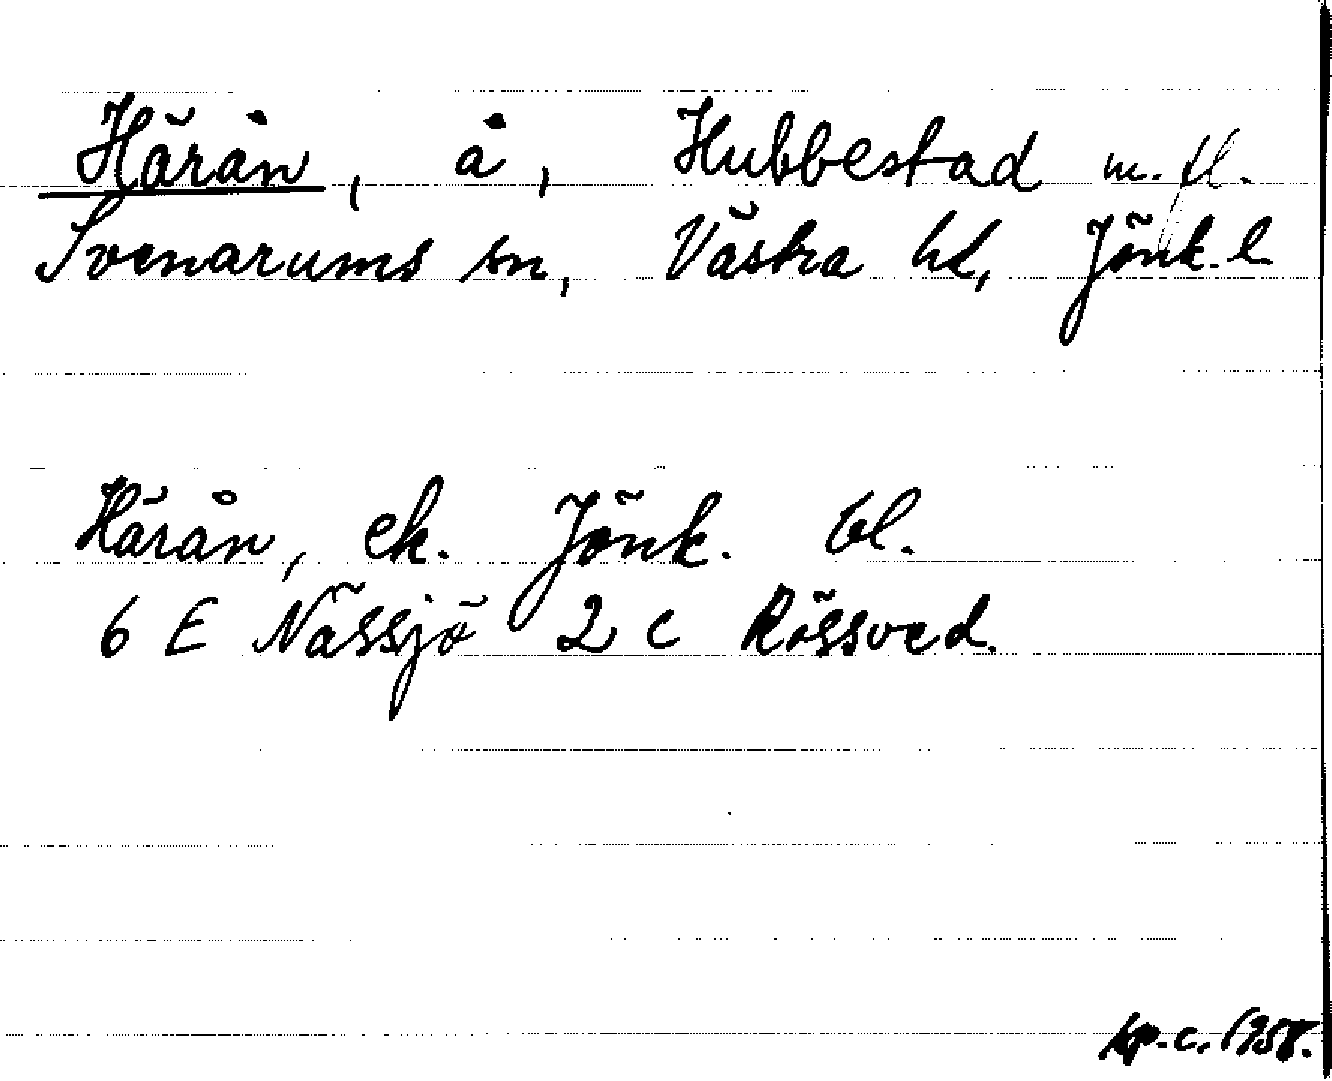 Härån, å, Hubbestad m. fl.
Svenarums sn, Västra hd, Jönk. l.
Härån, ek. Jönk. bl.
6 E Nässjö 2 c Rössved.
kp. c. 1958.